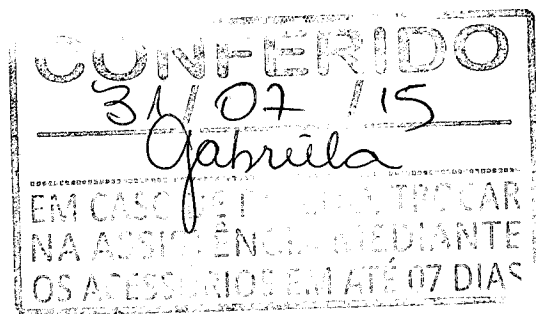 CONFERIDO
31/07/15
Gabriela
EM CASO DE TROCAR
NA ASSISTÊNCIA MEDIANTE
OS ACESSÓRIOS EM ATÉ 07 DIAS